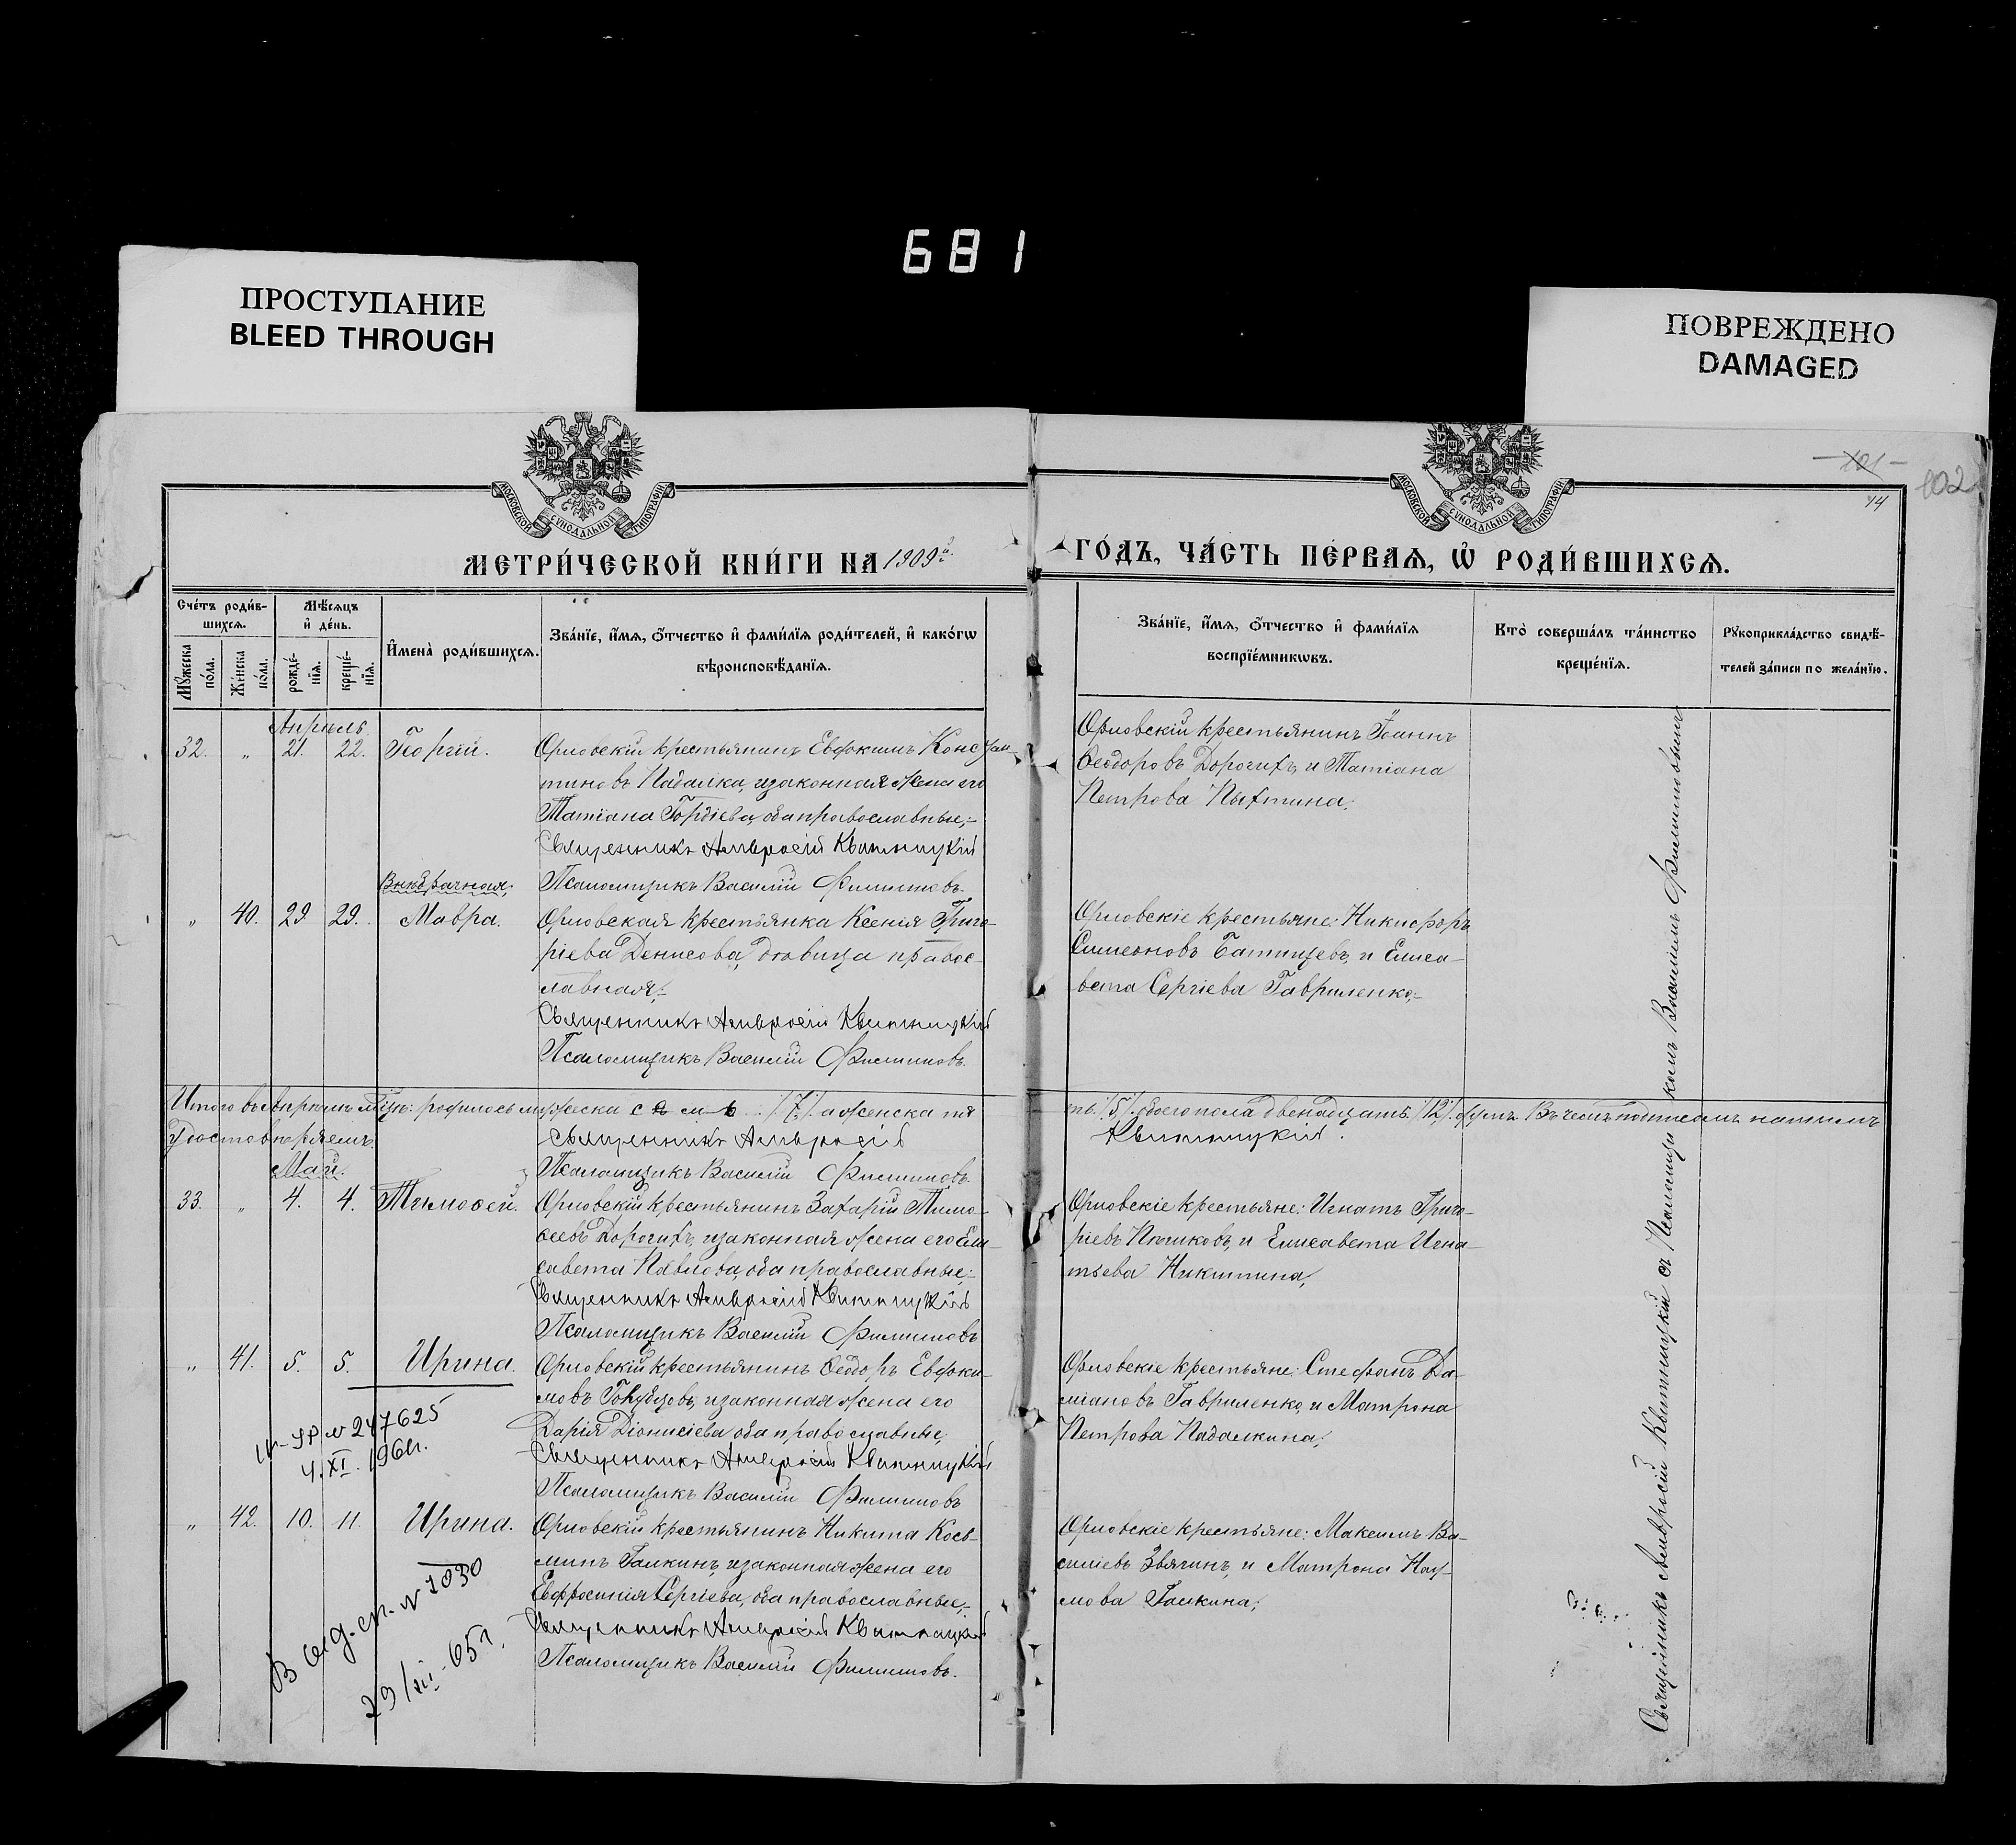 681
ПРОСТУПАНИЕ
BLEED THROUGH
ПОВРЕЖДЕНО
DAMAGED
МОСКОВСКОЙ СУНОДАЛЬНОЙ ТИПОГРАФІИ
МОСКОВСКОЙ СУНОДАЛЬНОЙ ТИПОГРАФІИ
101
102
44
МЕТРИ́ЧЕСКОЙ КНИ́ГИ НА 1909й
ГО́ДЪ, ЧА́СТЬ ПЕ́РВАѦ, Ѡ҆ РОДИ́ВШИХСѦ.
Сче́тъ роди́в-
шихсѧ.
Мꙋ́жеска по́ла.
Же́нска по́ла.
Мѣ́сѧцъ
и҆ де́нь.
рожде́-
нїѧ.
креще́-
нїѧ.
И҆мена̀ роди́вшихсѧ.
Зва́нїе, и҆́мѧ, ѻ҆́тчество и҆ фами́лїѧ роди́телей, и҆ како́гѡ
вѣроисповѣ́данїѧ.
Зва́нїе, и҆́мѧ, ѻ҆́тчество и҆ фами́лїѧ
воспрїе́мникѡвъ.
Кто̀ соверша́лъ та́инство
креще́нїѧ.
Рꙋкоприкла́дство свидѣ́-
телей за́писи по жела́нїю.
Апрѣль
32. „ 21. 22. Георгій. Орловскій крестьянинъ Евфимъ Констан-
тиновъ Падалка, и законная жена его
Татіана Гордіева, оба православные;-
Священникъ Амвросій Квитницкій
Псаломщикъ Василій Филиповъ.
Орловскій крестьянинъ Іоаннъ
Ѳеодоровъ Дорогихъ, и Татіана
Петрова Пыхтина;
Внѣбрачная;
„ 40. 29. 29. Мавра. Орловская крестьянка Ксенія Григо-
ріева Денисова, вдовица правос-
лавная;-
Священникъ Амвросій Квитницкій
Псаломщикъ Василій Филиповъ.
Орловскіе крестьяне: Никифоръ
Симеоновъ Батищевъ, и Елиса-
вета Сергіева Гавриленко;-
Итого въ Апрѣлѣ мѣсяцѣ: родилось мужеска семь /7/. а женска пя
ть /5/. обоего пола двенадцать /12/. душъ. Въ чемъ подписомъ нашимъ
Удостовѣряемъ.
Священникъ Амвросій
Квитницкій.
Псаломщикъ Василій Филиповъ.
Май.
33. „ 4. 4. Тимоѳей. Орловскій крестьянинъ Захарій Тимо-
ѳеевъ Дорогихъ, и законная жена его Ели-
савета Павлова, оба православные;-
Священникъ Амвросій Квитницкій
Псаломщикъ Василій Филиповъ
Орловскіе крестьяне: Игнатъ Григо-
ріевъ Плюшковъ, и Елисавета Игна-
тьева Никитина;
„ 41. 5. 5. Ирина. Орловскій крестьянинъ Ѳеодоръ Евфи-
мовъ Голубцовъ, и законная жена его
Дарія Діонисіева оба православные;
Священникъ Амвросій Квитницкій
Псаломщикъ Василій Филиповъ
Орловскіе крестьяне: Стефанъ Да-
міановъ Гавриленко, и Матрона
Петрова Падалкина;
№ 247625
4/XI. 196
„ 42. 10. 11. Ирина. Орловскій крестьянинъ Никита Кось-
минъ Галкинъ, и законная жена его
Евфросинія Сергіева, оба православные;-
Священникъ Амвросій Квитницкій
Псаломщикъ Василій Филиповъ.
Орловскіе крестьяне: Максимъ Ва-
силіевъ Звягинъ, и Матрона Нау-
мова Галкина;
№ 1030
29/III-65г.
Священникъ Амвросій Квитницкій съ Псаломщикомъ Василіемъ Филиповымъ